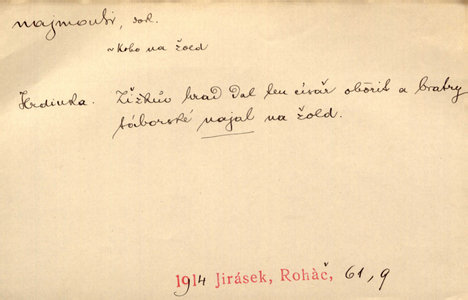 najmouti, dok.
~ koho na žold
Hrdinka. Žižkův hrad dal ten císař obořit a bratry
táborské najal na žold.
1914 Jirásek, Roháč, 61, 9